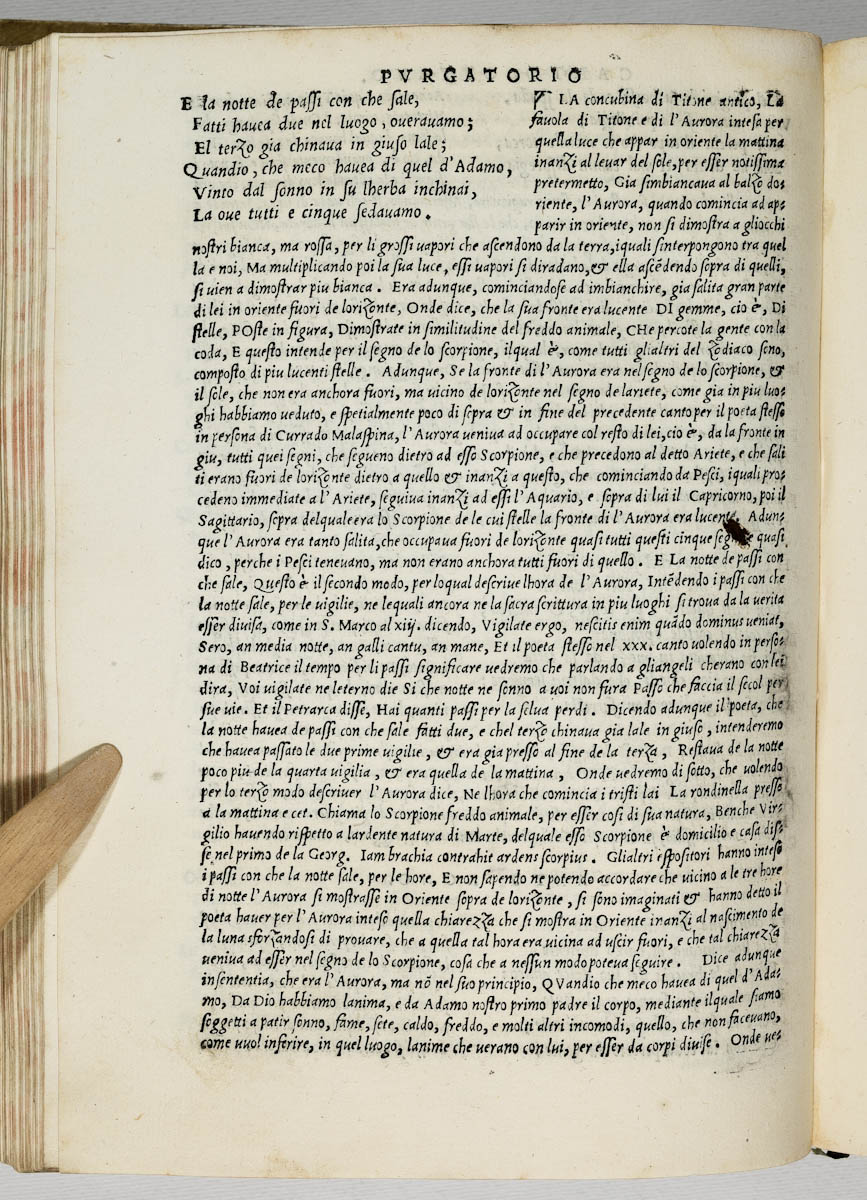 PVRGATORIO
E la notte de passi con che sale,
Fatti hauea due nel luogo, oueravamo;
El terzo gia chinaua in giuso lale;
Quandio, che meco hauea di quel d'Adamo,
Vinto dal sonno in su lherba inchinai,
La oue tutti e cinque sedauamo.
LA concubina di Titone antico, La
fauola di Titone e di l'Aurora intesa per
quella luce che appar in oriente la mattina
inanzi al leuar del sole, per esser notissima
pretermetto, Gia simbiancaua al balzo do⸗
riente, l'Aurora, quando comincia ad ap⸗
parir in oriente, non si dimostra a gliocchi
nostri bianca, ma rossa, per li grossi vapori che ascendono da la terra, iquali sinterpongono tra quel
la e noi, Ma multiplicando poi la sua luce, essi vapori si diradano, & ella ascēdendo sopra di quelli,
si uien a dimostrar piu bianca. Era adunque, cominciandose ad imbianchire, gia salita gran parte
di lei in oriente fuori de lorizonte, Onde dice, che la sua fronte era lucente DI gemme, cio è, Di
stelle, POste in figura, Dimostrate in similitudine del freddo animale, CHe percote la gente con la
coda, E questo intende per il segno de lo scorpione, ilqual è, come tutti glialtri del zodiaco sono,
composto di piu lucenti stelle. Adunque, Se la fronte di l'Aurora era nel segno de lo scorpione, &
il sole, che non era anchora fuori, ma uicino de lorizonte nel segno de lariete, come gia in piu luo⸗
ghi habbiamo veduto, e spetialmente poco di sopra & in fine del precedente canto per il poeta stesso
in persona di Currado Malaspina, l'Aurora veniua ad occupare col resto di lei, cio è, da la fronte in
giu, tutti quei segni, che segueno dietro ad esso Scorpione, e che precedono al detto Ariete, e che sali
ti erano fuori de lorizonte dietro a quello & inanzi a questo, che cominciando da Pesci, iquali pro⸗
cedeno immediate a l'Ariete, seguiua inanzi ad essi l'Aquario, e sopra di lui il Capricorno, poi il
Sagittario, sopra delquale era lo Scorpione de le cui stelle la fronte di l'Aurora era lucente. Adun⸗
que l'Aurora era tanto salita, che occupaua fuori de lorizonte quasi tutti questi cinque quasi
dico, perche i Pesci teneuano, ma non erano anchora tutti fuori di quello. E LA notte de passi con
che sale, Questo è il secondo modo, per loqual descriue lhora de l'Aurora, Intēdendo i passi con che
la notte sale, per le vigilie, ne lequali ancora ne la sacra scrittura in piu luoghi si troua da la verita
esser diuisa, come in S. Marco al xiij. dicendo, Vigilate ergo, nescitis enim quādo dominus ueniat,
Sero, an media notte, an galli cantu, an mane, Et il poeta stesso nel xxx. canto uolendo in perso⸗
na di Beatrice il tempo per li passi significare vedremo che parlando a gliangeli cherano con lei
dira, Voi vigilate ne leterno die Si che notte ne sonno a voi non fura Passo che faccia il secol per
sue vie. Et il Petrarca disse, Hai quanti passi per la selua perdi. Dicendo adunque il poeta, che
la notte hauea de passi con che sale fatti due, e chel terzo chinaua gia lale in giuso, intenderemo
che hauea passato le due prime vigilie, & era gia presso al fine de la terza, Restaua de la notte
poco piu de la quarta vigilia, & era quella de la mattina, Onde uedremo di sotto, che volendo
per lo terzo modo descriuer l'Aurora dice, Ne lhora che comincia i tristi lai La rondinella presso
a la mattina e cet. Chiama lo Scorpione freddo animale, per esser cosi di sua natura, Benche Vir⸗
gilio hauendo rispetto a lardente natura di Marte, delquale esso Scorpione è domicilio e casa dis⸗
se nel primo de la Georg. Iam brachia contrahit ardens scorpius. Glialtri espositori hanno inteso
i passi con che la notte sale, per le hore, E non sapendo ne potendo accordare che vicino a le tre hore
di notte l'Aurora si mostrasse in Oriente sopra de lorizonte, si sono imaginati & hanno detto il
poeta hauer per l'Aurora inteso quella chiarezza che si mostra in Oriente inanzi al nascimento de
la luna sforzandosi di prouare, che a quella tal hora era uicina ad uscir fuori, e che tal chiarezza
ueniua ad esser nel segno de lo Scorpione, cosa che a nessun modo poteua seguire. Dice adunque
insententia, che era l'Aurora, ma nō nel suo principio, QVandio che meco hauea di quel d'Ada⸗
mo, Da Dio habbiamo lanima, e da Adamo nostro primo padre il corpo, mediante ilquale siamo
soggetti a patir sonno, fame, sete, caldo, freddo, e molti altri incomodi, quello, che non faceuano,
come vuol inferire, in quel luogo, lanime che verano con lui, per esser da corpi diuise. Onde ve⸗